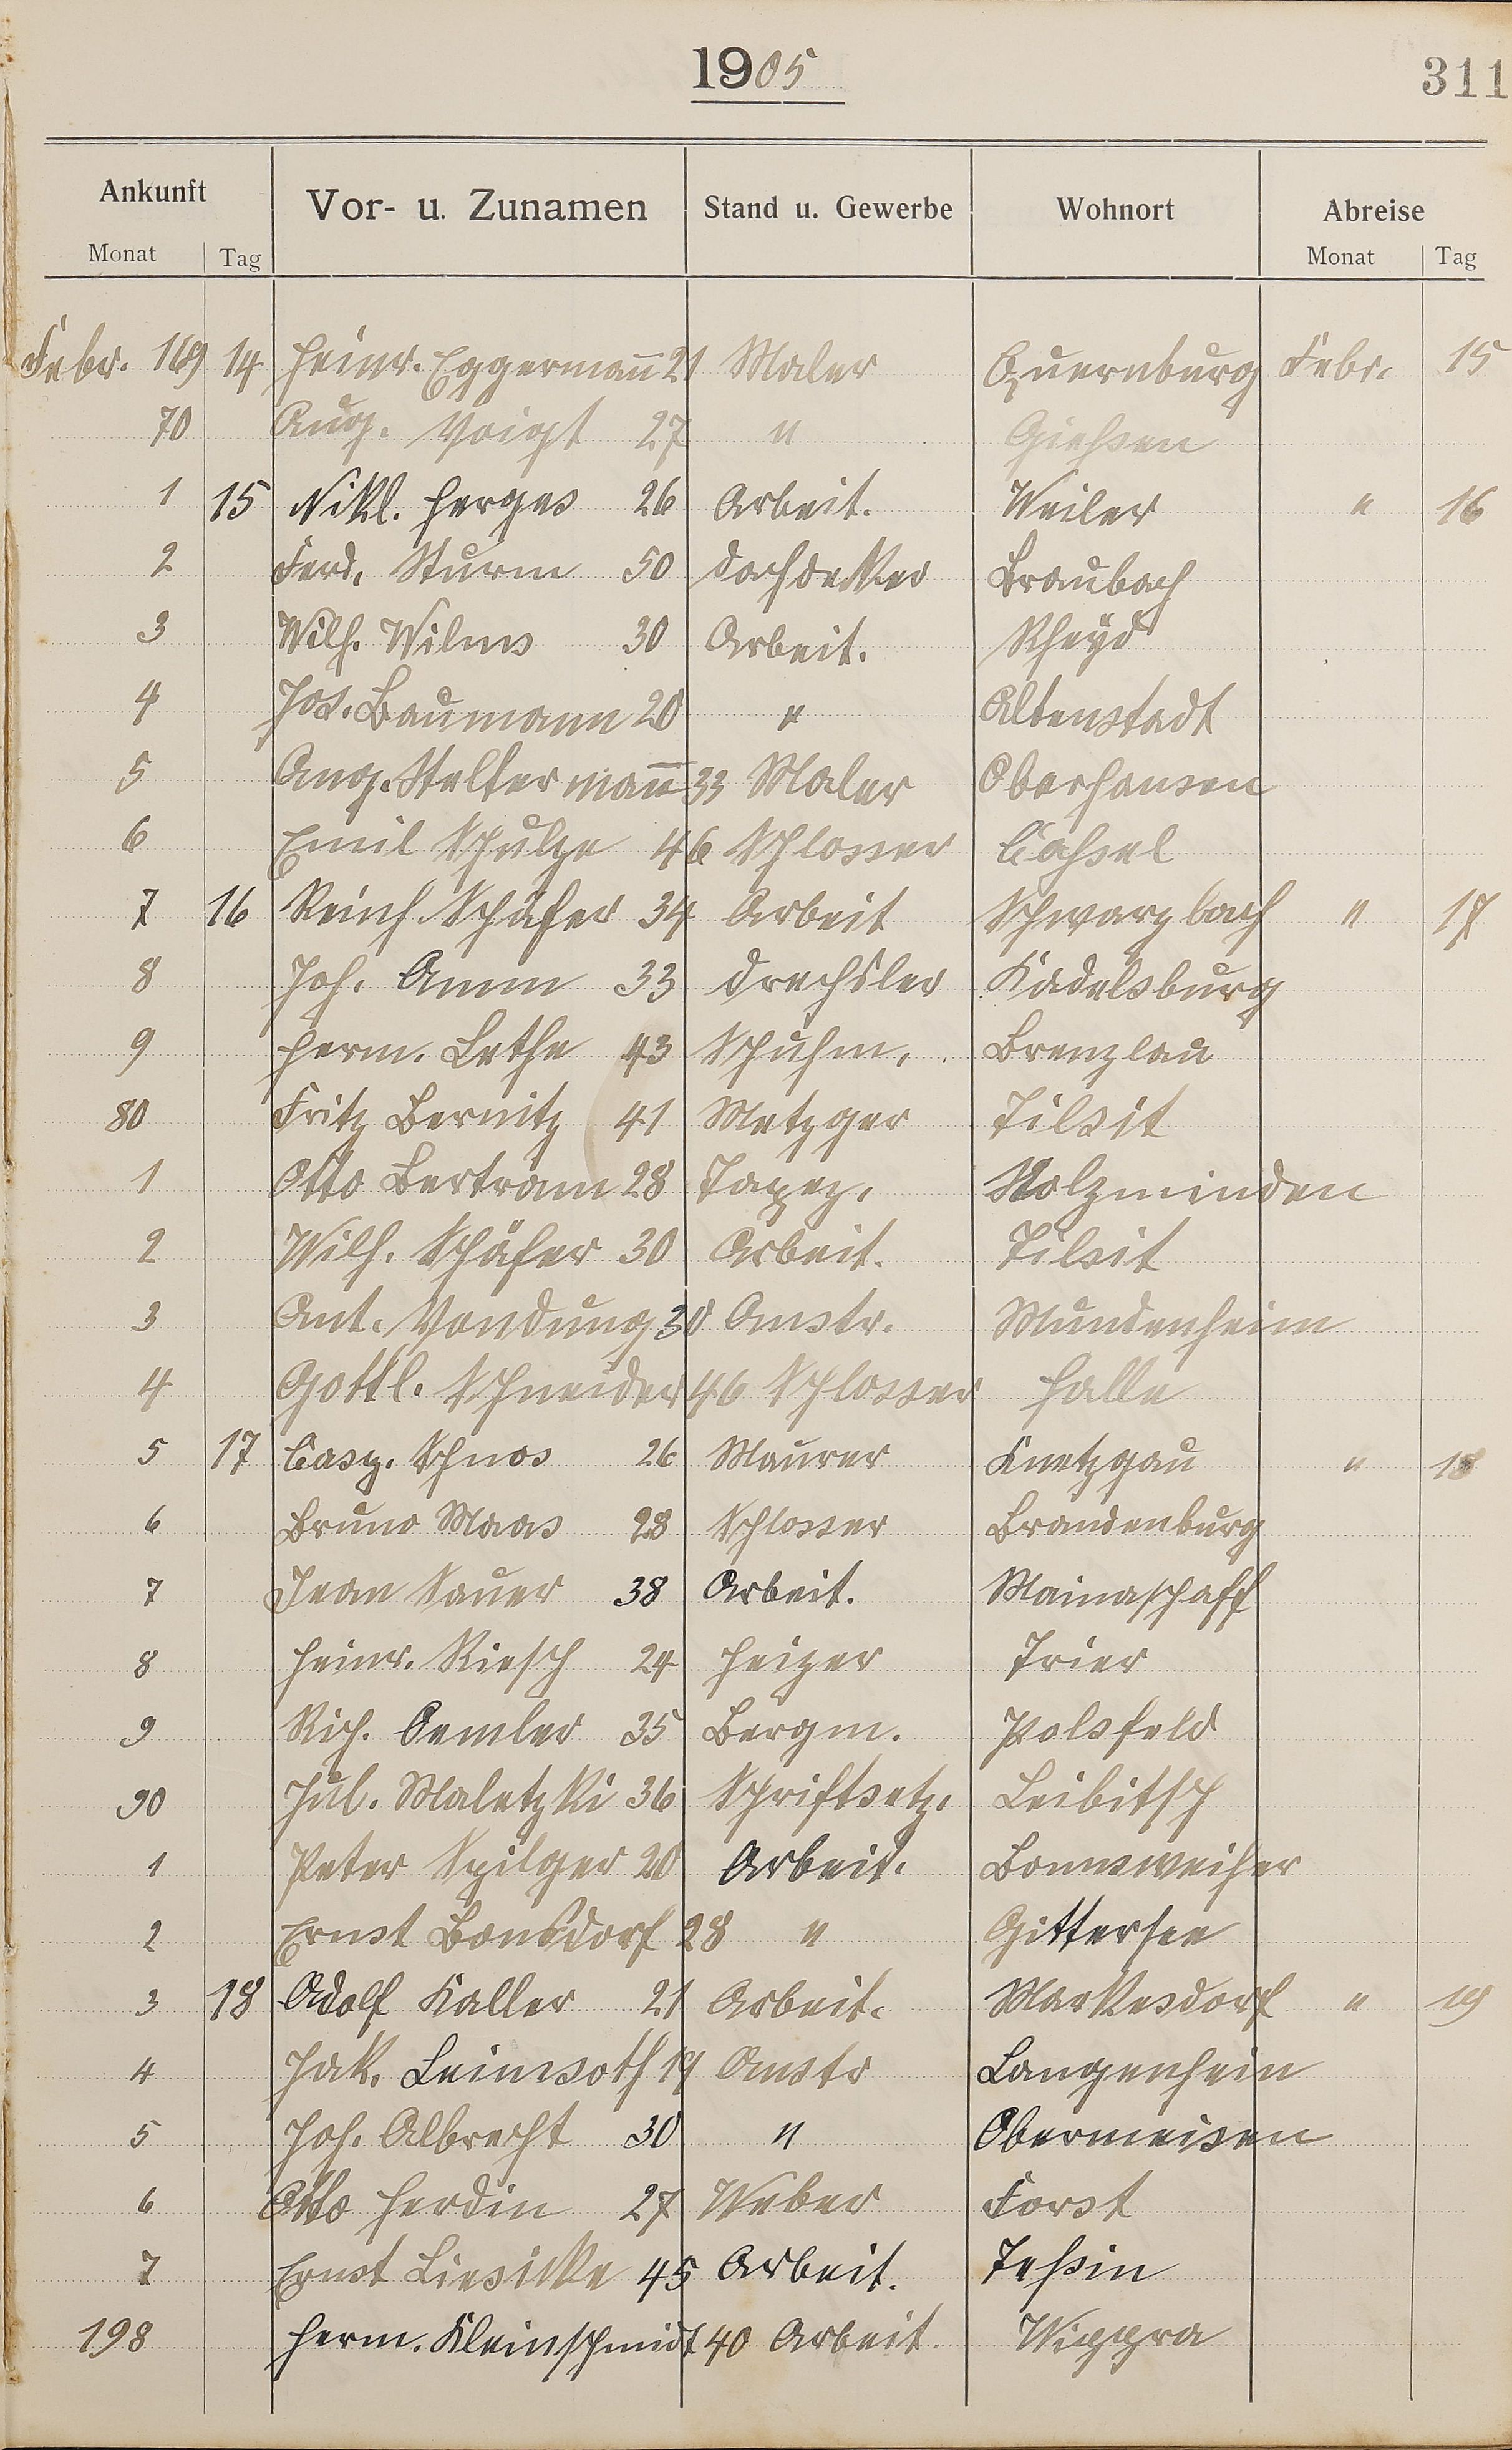 1905
311
Ankunft Vor- u. Zunamen Stand u. Gewerbe Wohnort Abreise
Monat Tag Monat Tag
Febr. 169 14 Heinr. Eggermann 21 Maler Quernburg Febr. 15
70 Aug. Voigt 27 " Gießen
1 15 Nikl. Herges 26 Arbeit. Weiler " 16
2 Ferd. Sturm 50 Dachdeker Braubach
3 Wilh. Wilms 30 Arbeit. Rheyd
4 Jos. Baumann 20 " Altenstadt
5 Aug. Steltermann 33 Maler Oberhausen
6 Emil Schulze 46 Schlosser Caßsel
7 16 Reinh Schäfer 34 Arbeit Schwarzbach " 17
8 Joh. Amm 33 Drechsler Kadelsburg
9 Herm. Lethe 43 Schuhm. Brenzlau
80 Fritz Bernitz 41 Metzger Tilsit
1 Otto Bertram 28 Tapez. Holzminden
2 Wilh. Schäfer 30 Arbeit. Tilsit
3 Ant. Vondung 30 Anstr. Mundenheim
4 Gottl. Schneider 46 Schlosser Halle
5 17 Casp. Schnos 26 Maurer Knetzgau " 18
6 Bruno Maas 28 Schlosser Brandenburg
7 Jean Sauer 38 Arbeit. Mainaschaff
8 Heinr. Riesch 24 Heizer Trier
9 Rich. Oemler 35 Bergm. Polsfeld
90 Jul. Maletzki 36 Schriftsetz. Leibitsch
1 Peter Spilger 20 Arbeit. Bonnsweiher
2 Ernst Bonsdorf 28 " Gittersee
3 18 Adolf Kaller 21 Arbeit. Markesdorf " 19
4 Jak. Leimsoth 19 Anstr Langenhein
5 Joh. Albrecht 30 " Obermeisen
6 Otto Herdin 27 Weber Forst
7 Ernst Liesicke 45 Arbeit. Teßin
198 Herm. Kleinschmidt 40 Arbeit. Wippra